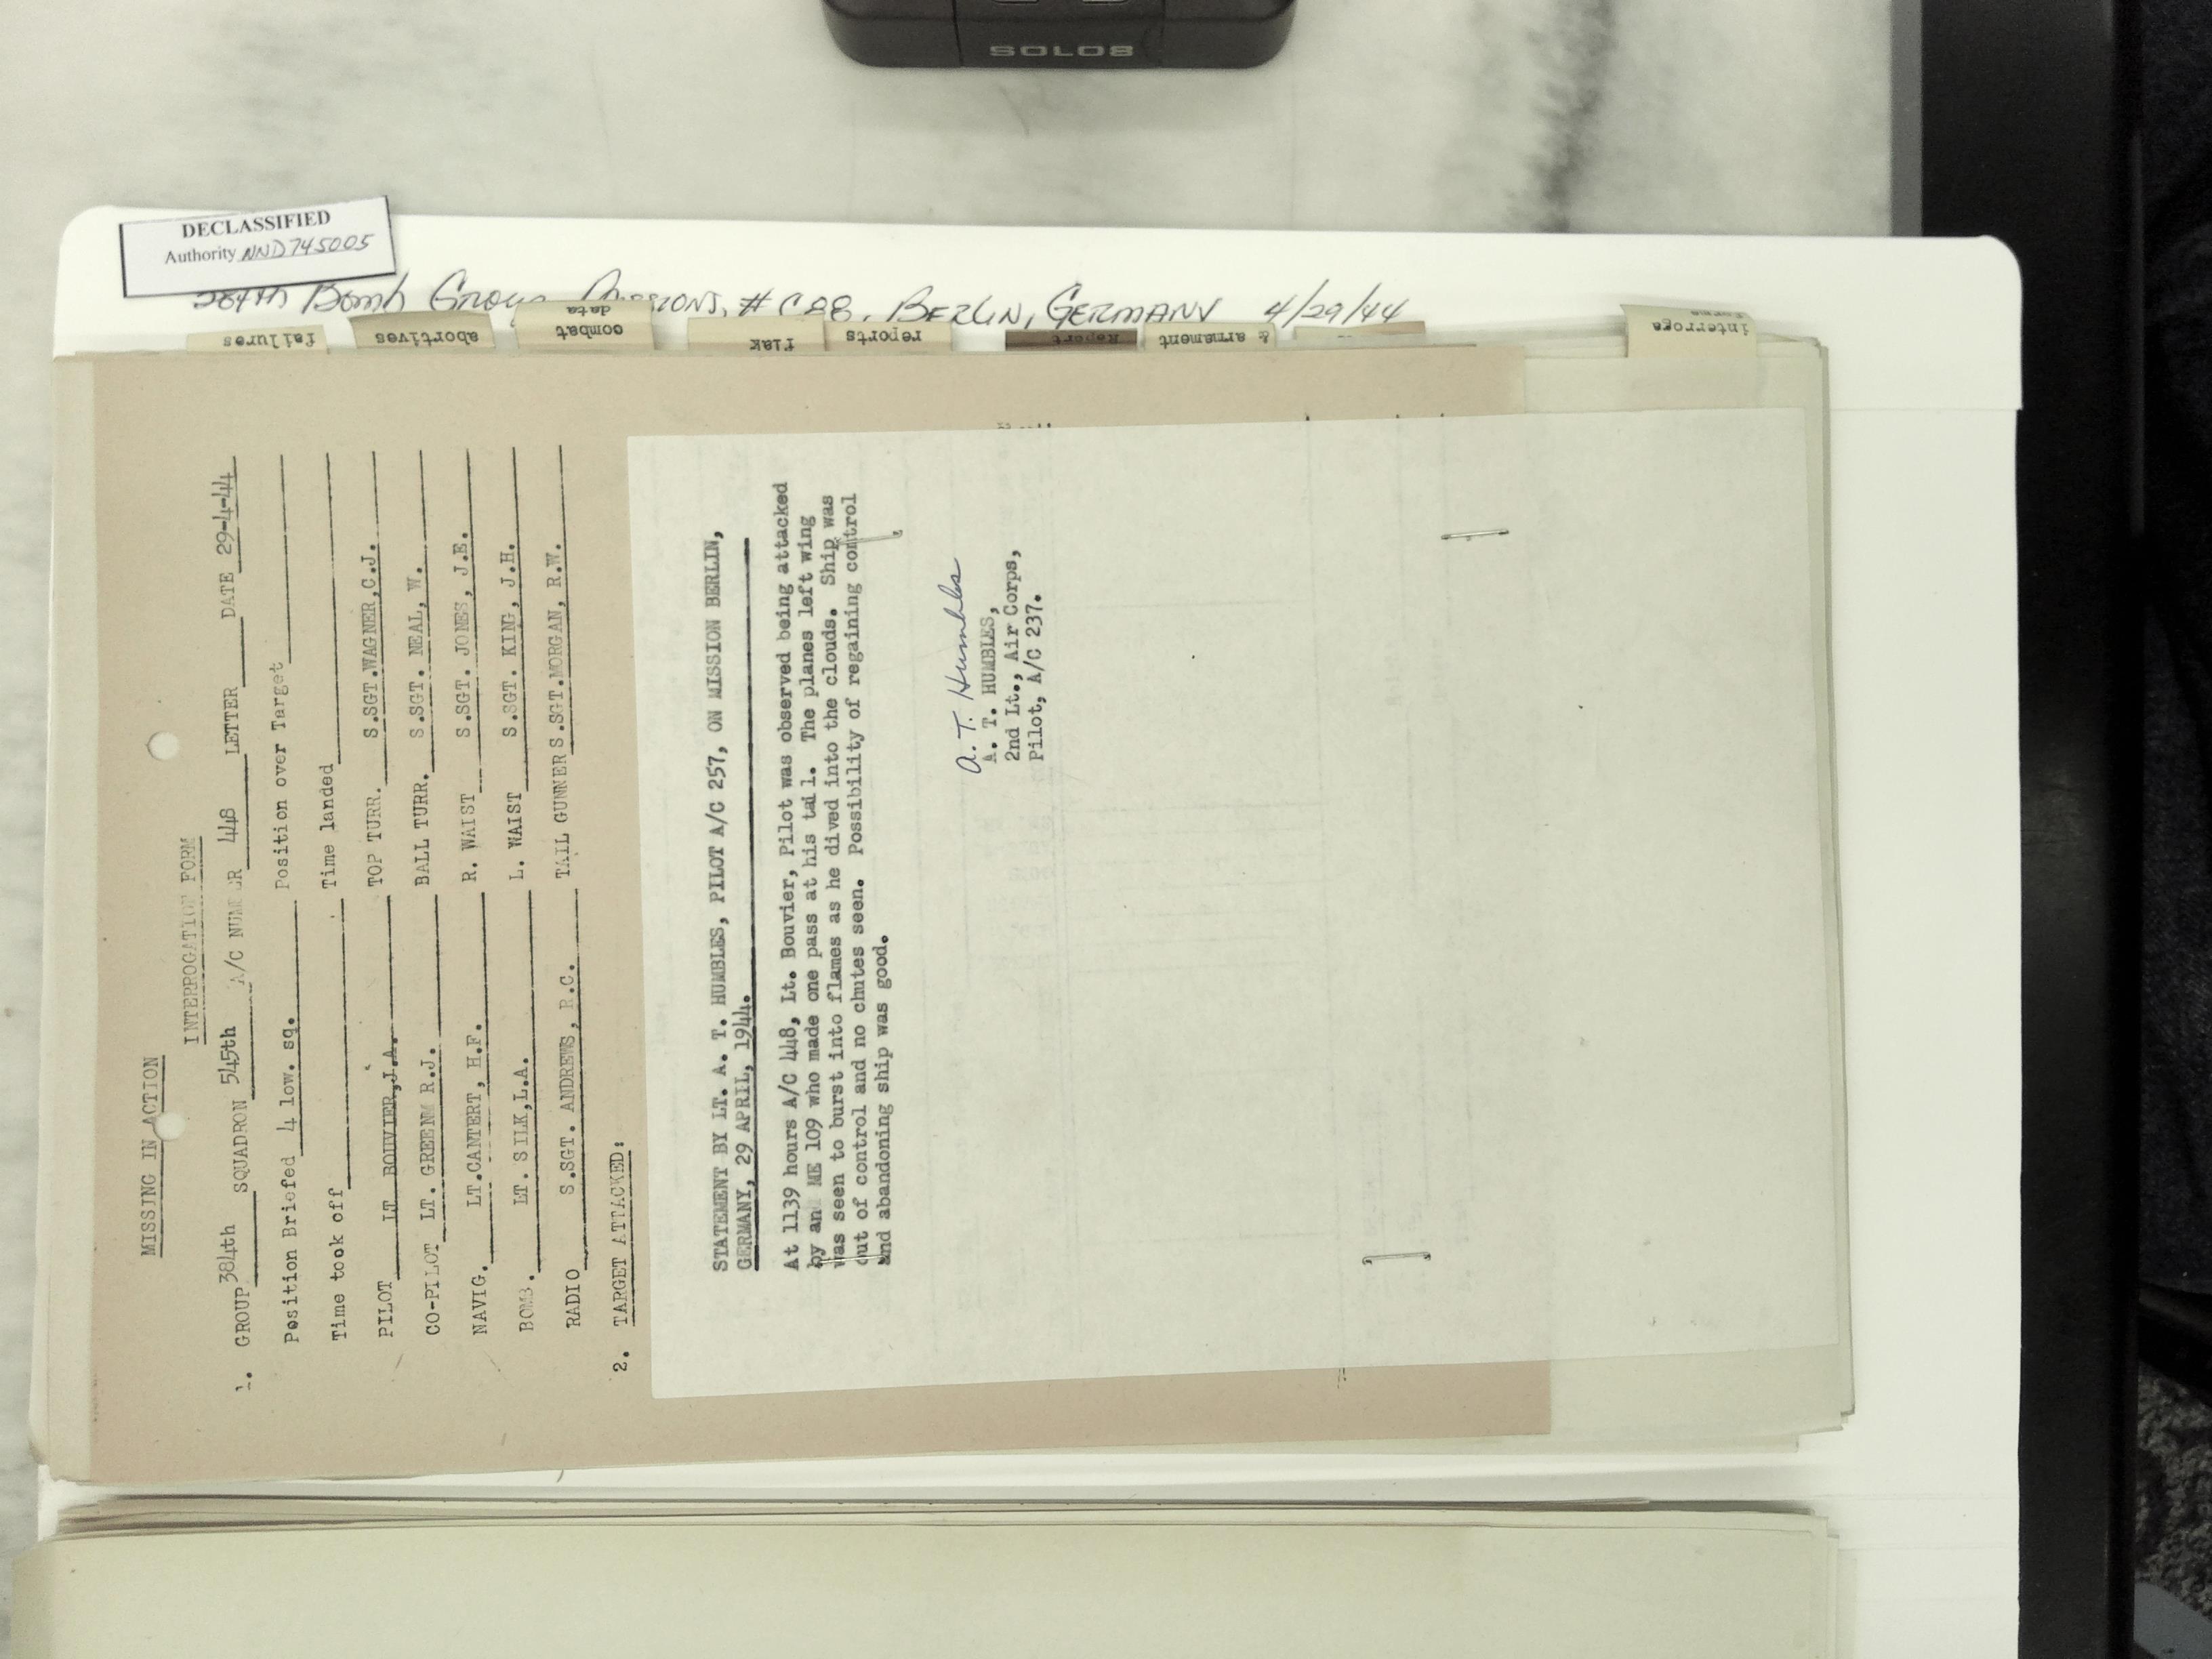 SOLOS
DECLASSIFIED
Authority NND745005
384th Bomb Group Missions, # C88, BERLIN, GERMANY 4/29/44
failures
abortives
combat
data
flak
reports
Report
& armament
interroga
MISSING IN ACTION
INTERROGATION FORM
1. GROUP 384th SQUADRON 545th A/C NUMBER 448 LETTER DATE 29-4-44
Position Briefed 4 low. sq. Position over Target
Time took off Time landed
PILOT LT BOUVIER,J.A. TOP TURR. S.SGT.WAGNER,C.J.
CO-PILOT LT. GREENM R.J. BALL TURR. S.SGT. NEAL, W.
NAVIG. LT.CANTERT, H.F. R. WAIST S.SGT. JONES, J.E.
BOMB. LT. SILK,L.A. L. WAIST S.SGT. KING, J.H.
RADIO S.SGT. ANDREWS, R.C. TAIL GUNNER S.SGT.MORGAN, R.W.
2. TARGET ATTACKED:
STATEMENT BY LT. A. T. HUMBLES, PILOT A/C 257, ON MISSION BERLIN,
GERMANY, 29 APRIL, 1944.
At 1139 hours A/C 448, Lt. Bouvier, Pilot was observed being attacked
by an ME 109 who made one pass at his tail. The planes left wing
was seen to burst into flames as he dived into the clouds. Ship was
out of control and no chutes seen. Possibility of regaining control
and abandoning ship was good.
A. T. Humbles
A. T. HUMBLES,
2nd Lt., Air Corps,
Pilot, A/C 237.